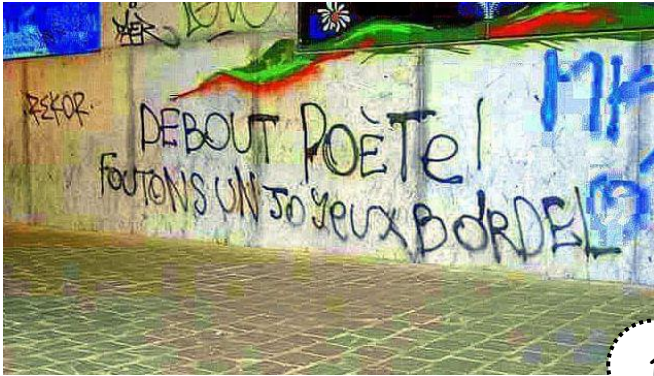 REKOR
DEBOUT POÈTE!
FOUTONS UN JOYEUX BORDEL